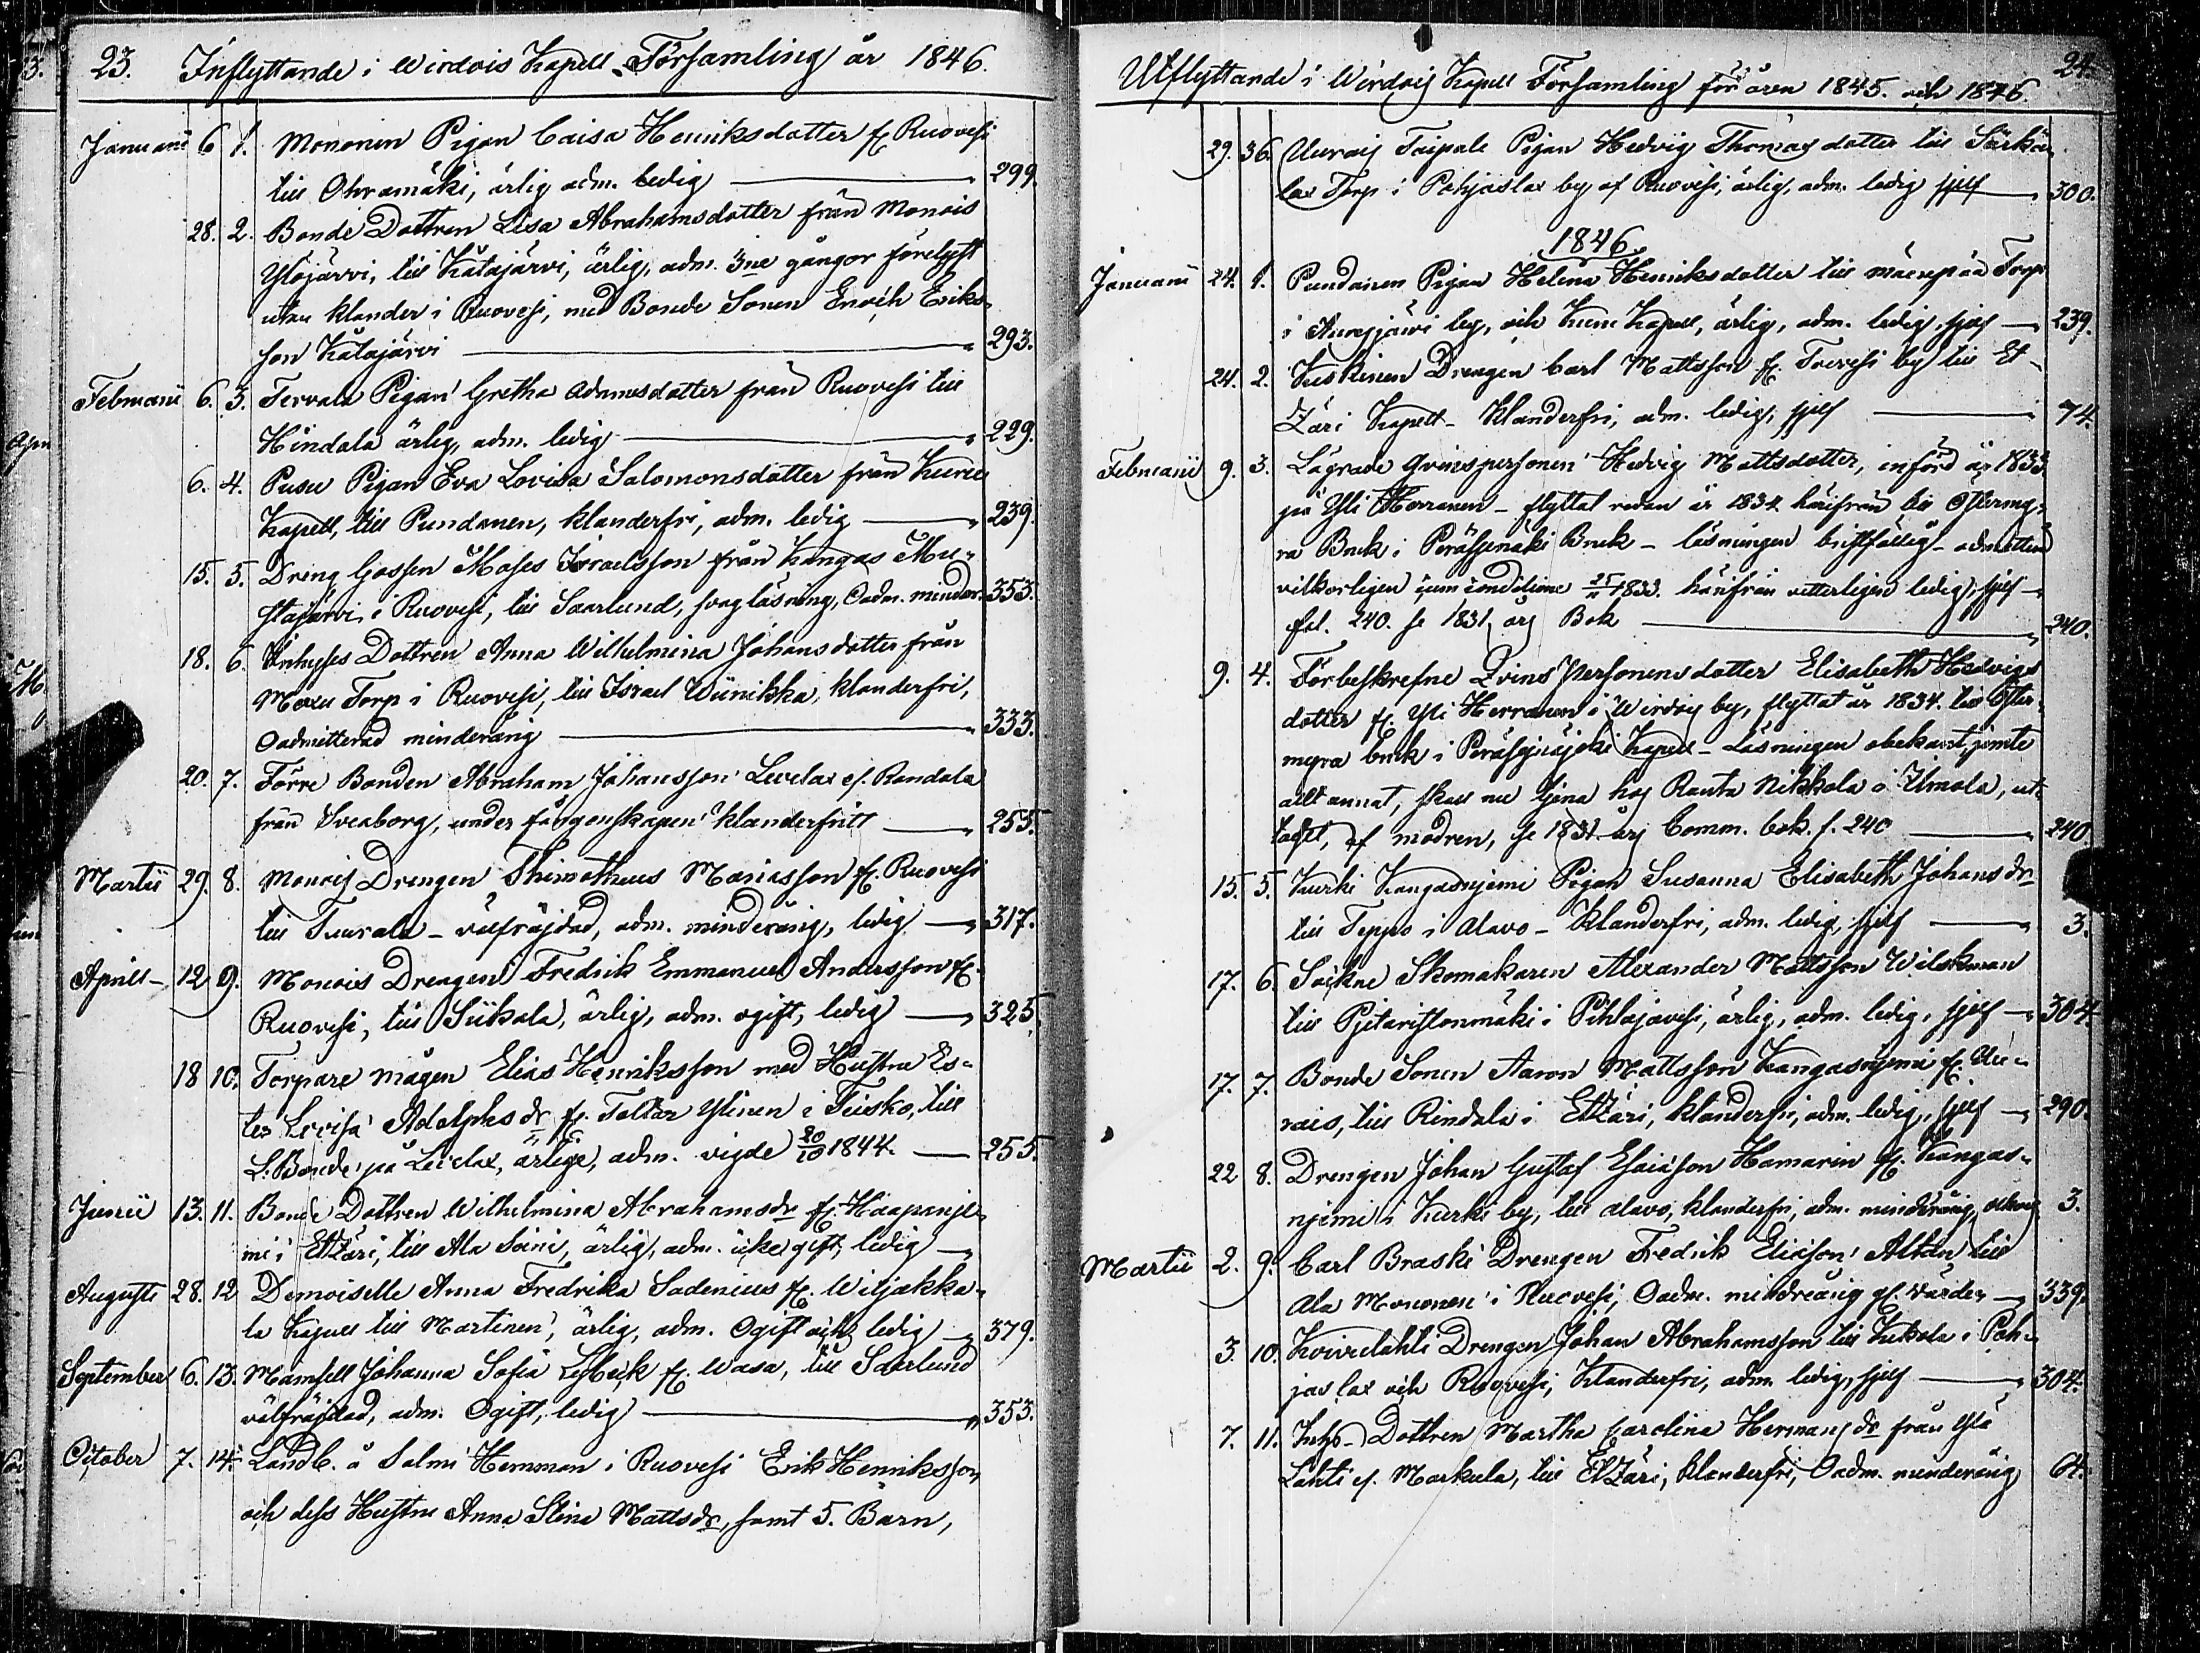 23. Inflyttande i Wirdois Kapell Församling år 1846.
Januarii 6 1. Mononen Pigan Caisa Henriksdotter fr. Ruovesi
till Ohramäki, ärlig adm. ledig — 299.
28. 2. Bonde Dottren Lisa Abrahamsdotter från Monois
Ylöjärvi, till Katajärvi, ärlig, adm. 3ne gångor förelyst
utan klander i Ruovesi, med Bonde Sonen Enoch Eriks-
son Katajärvi — 293.
Februarii 6. 3. Tervala Pigan Gretha Adamsdotter från Ruovesi till
Hindala ärlig, adm. ledig — 229.
6. 4. Pusu Pigan Eva Lovisa Salomonsdotter från Kuru
Kapell, till Pundanen, klanderfri, adm. ledig — 239.
15. 5. Dreng Gossen Moses Israelsson från Kangas Mu-
stajärvi i Ruovesi, till Saarlund, svag läsning, Oadm. minder. 353.
18. 6. Inhyses Dottren Anna Wilhelmina Johansdotter från
Torp i Ruovesi, till Israel Wünikka, klanderfri,
Oadmitterad minderårig — 333.
20. 7. Förre Bonden Abraham Johansson Levelax ef. Randala
från Sveaborg, under fångenskapen klanderfritt — 255.
Martii 29. 8. Monois Drengen Thimotheus Mariasson fr. Ruovesi
till Tuurala - välfräjdad, adm. minderårig, ledig — 317.
Aprill - 12 9. Monois Drengen Fredrik Emmanuel Andersson fr.
Ruovesi, till Siikala, ärlig, adm. ogift, ledig — 325.
18 10. Torpare mågen Elias Henriksson med Hustru Es-
ter Lovisa Adolphs dr fr. Ylinen i Teisko, till
L. Bonde på Levelax, ärlige, adm. vigde 20/10 1844. — 255.
Junii 13. 11. Bonde Dottren Wilhelmina Abrahamsdr fr. Haapanje-
mi i Etzäri, till Ala Soini, ärlig, adm. icke gift, ledig —
Augusti 28. 12 Demoiselle Anna Fredrika Sadenius fr. Wiljakka-
la Kapell till Martinen, ärlig, adm. Ogift och ledig — 379.
September 6. 13. Mamsell Johanna Sofia fr. Wasa, till Saarlund
välfräjdad, adm. Ogift, ledig — 353.
October 7. 14. Landb. å Salmi Hemman i Ruovesi Erik Henriksson
och dess Hustru Anna Stina Mattsdr, samt 5. Barn,
Utflyttande i Wirdois Kapell Församling för åren 1845. och 1846. 24.
29. 36. Uurais Taipale Pigan Hedvig Thomas dotter till Särkä-
lax Torp i Pohjaslax by, af Ruovesi, ärlig, adm. ledig sjelf — 300.
1846.
Januarii 24. 1. Pundanen Pigan Helena Henriksdotter till Torp
i by, och Kuru Kapell, ärlig, adm. ledig, sjelf — 239.
24. 2. Kuskinen Drengen Carl Mattsson fr. by till Et-
zäri Kapell - Klanderfri, adm. ledig, sjelf — 74.
Februarii 9. 3. Lägrade qvinspersonen Hedvig Mattsdotter, införd år 1833
på Yli Herranen - flyttat redan år 1834 härifrån till Östermy-
ra Bruk i Bruk - läsningen bristfällig - admitterd
vilkorligen cum conditione 1833. härifrån vetterligen ledig, sjelf —
fol. 240. se 1831 års Bok — 240.
9. 4. Förbeskrefne Qvins personens dotter Elisabeth Hedvigs
dotter fr. Yli Herranen i Wirdois by, flyttat år 1834. till Öster-
myra bruk i Peräseinäjoki Kapell - Läsningen obekant, jemte
allt annat, skall nu tjena hos Ranta Nikkola i Ilmola, ut-
tagit, af modren, se 1831 års Comm. bok. f. 240 — 240.
15. 5. Kurki Kangasnjemi Pigan Susanna Elisabeth Johans dr
till Teppo i Alavo - Klanderfri, adm. ledig, sjelf — 3.
17. 6. Sockne Skomakaren Alexander Mattsson Wilskman
till i Pihlajavesi, ärlig, adm. ledig, sjelf — 304.
17. 7. Bonde Sonen Aaron Mattsson Kangasnjemi fr. Uu-
rais, till Rindala i Etzäri, klanderfri, adm. ledig, sjelf — 290.
22 8. Drengen Johan Gustaf Esaiasson Hamarin fr. Kangas-
njemi i Kurki by, till Alavo, klanderfri, adm. minderårig, 3.
Martii 2. 9. Carl Braski Drengen Fredrik Eliasson Altan till
Ala Mononen i Ruovesi, Oadm. minderårig — 339.
3. 10. Koivulahti Drengen Johan Abrahamsson till Kukola i Poh-
jas lax och Ruovesi, klanderfri, adm. ledig, sjelf — 304.
7. 11. Inhs - Dottren Martha Carolina Hermans dr från Ylä
Lahti ef. Markula, till Etzäri, klanderfri, Oadm. minderårig 64.